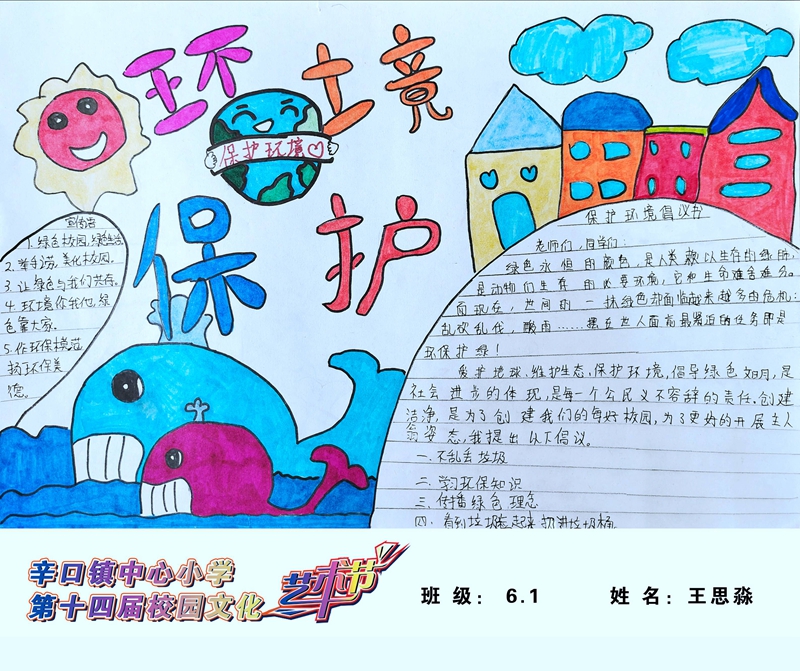 环境
保护环境♡
保护
宣传语
1. 绿色校园,绿色生活
2. 举手之劳,美化校园。
3. 让绿色与我们共存。
4. 环境你我他,绿
色靠大家。
5. 作环保模范
扬环保美
德。
保护环境倡议书
老师们、同学们:
绿色永恒的颜色,是人类赖以生存的
是动物们生存的必要环境,它和生命难舍难分。
而现在,世间的一抹绿色却面临越来越多的危机:
乱砍乱伐,酸雨……摆在世人面前最紧迫的任务即是
环保护绿!
爱护地球、维护生态、保护环境,倡导绿色如月,是
社会进步的体现,是每一个公民义不容辞的责任,创建
洁净,是为了创建我们的每好校园,为了更好的开展主人
翁姿态,我提出以下倡议。
一.不乱丢垃圾
二.学习环保知识
三.传播绿色理念
四.看到垃圾捡起来扔进垃圾桶
辛口镇中心小学
第十四届校园文化
艺术节
班级: 6.1 姓名:王思淼